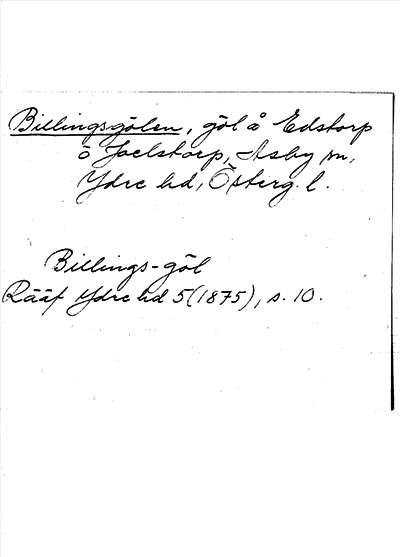 Billingsgölen, göl å Edstorp
o Joelstorp, Asby sn,
Ydre hd, Österg. l.
Billings-göl
Rääf Ydre hd 5 (1875), s. 10.